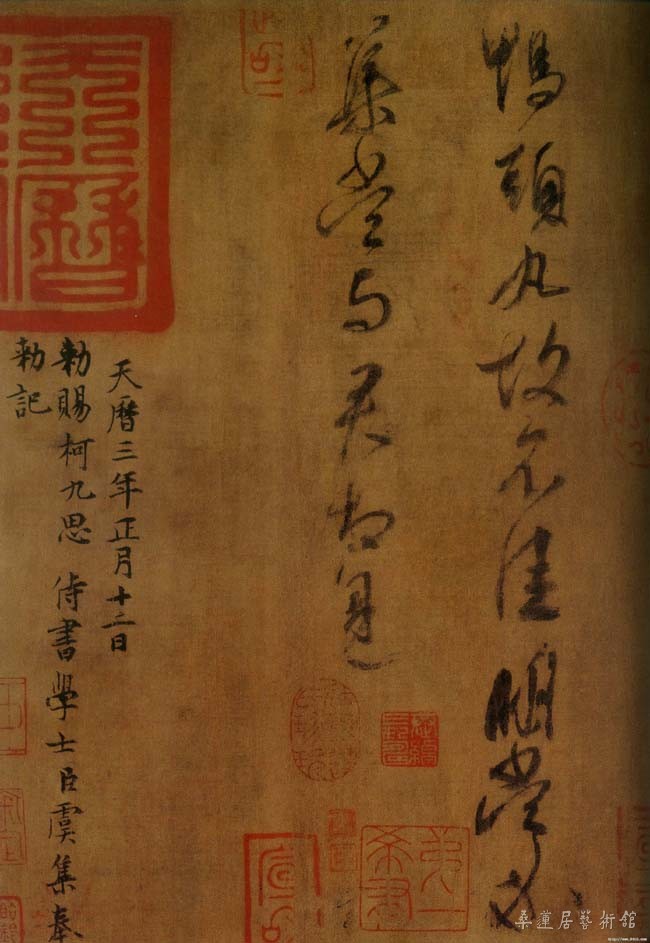 鴨頭丸故不佳明當必
集當与君相見
天曆
天曆三年正月十二日
勑賜柯九思 侍書學士臣虞集奉
勑記
桑蓮居藝術館